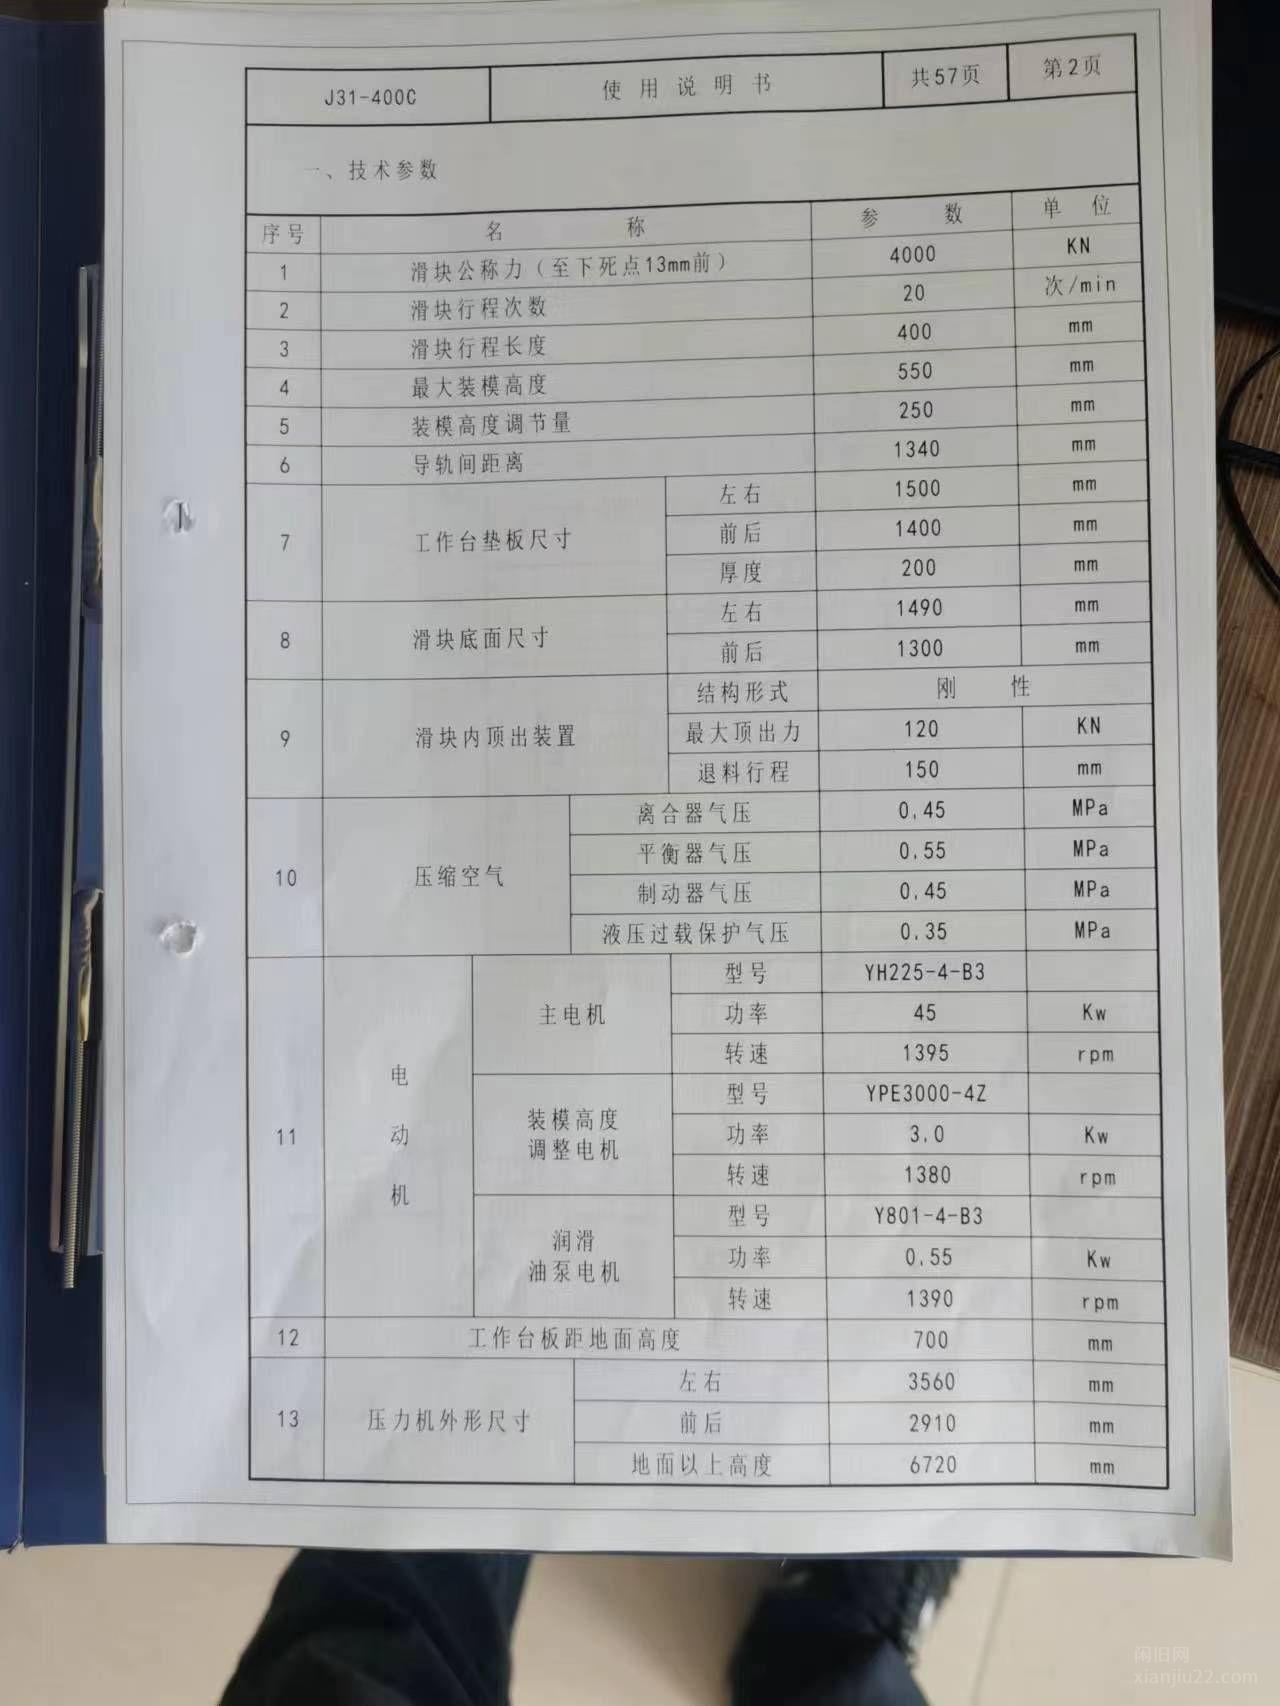 J31-400C 使用说明书 共57页 第2页
一、技术参数
序号 名称 参数 单位
1 滑块公称力（至下死点13mm前） 4000 KN
2 滑块行程次数 20 次/min
3 滑块行程长度 400 mm
4 最大装模高度 550 mm
5 装模高度调节量 250 mm
6 导轨间距离 1340 mm
7 工作台垫板尺寸 左右 1500 mm
前后 1400 mm
厚度 200 mm
8 滑块底面尺寸 左右 1490 mm
前后 1300 mm
9 滑块内顶出装置 结构形式 刚性
最大顶出力 120 KN
退料行程 150 mm
10 压缩空气 离合器气压 0.45 MPa
平衡器气压 0.55 MPa
制动器气压 0.45 MPa
液压过载保护气压 0.35 MPa
11 电动机 主电机 型号 YH225-4-B3
功率 45 Kw
转速 1395 rpm
装模高度调整电机 型号 YPE3000-4Z
功率 3.0 Kw
转速 1380 rpm
润滑油泵电机 型号 Y801-4-B3
功率 0.55 Kw
转速 1390 rpm
12 工作台板距地面高度 700 mm
13 压力机外形尺寸 左右 3560 mm
前后 2910 mm
地面以上高度 6720 mm
闲旧网
xianjiu22.com